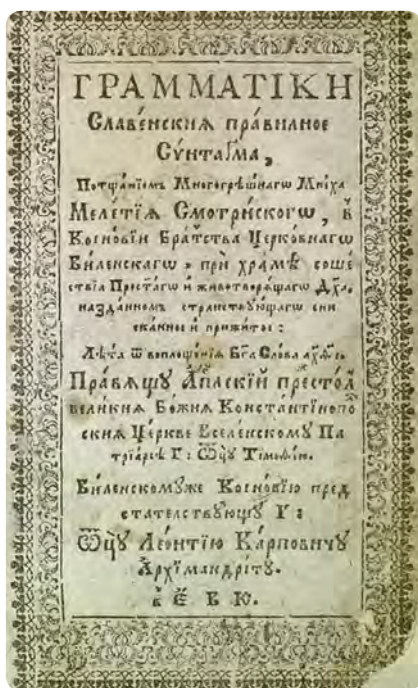 ГРАММАТІКИ
Славе́нскиѧ пра́вилное
Сѵ́нтаґма,
Потща́нїемъ Многогрѣ́шнагѡ Мни́ха
Меле́тїѧ Смотри́скогѡ, в̾
Коєно́вїи Бра́тства Церко́внагѡ
Ви́ленскагѡ, при̾ хра́мѣ соше
ствїа Прест҃агѡ и҆ животворѧ́щагѡ Дх҃а,
назда́нномъ, стра́нствꙋющагѡ сни
ска́нное и҆ прижи́тое:
Лѣ́та ѿ воплоще́нїѧ Бг҃а Сло́ва
Пра́вѧщꙋ А҆пⷭ҇лскїй престо́л
вели́киѧ Бо́жїѧ Константїнопо́
скиѧ Це́ркве Вселе́нскомꙋ Па
трїа́рсѣ Г: Ѿц҃ꙋ Тїмоѳе́ю.
Ви́ленскомꙋже Коєно́вїю пред
ста́телствꙋющꙋ Г:
Ѿц҃ꙋ Лео́нтїю Ка́рповичꙋ
А҆рхїмандрі́тꙋ.